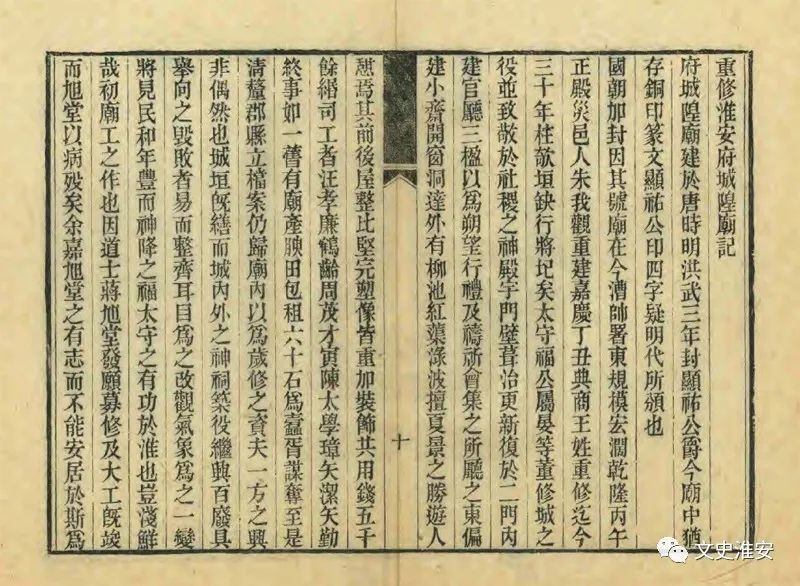 重修淮安府城隍廟記
府城隍廟建於唐時明洪武三年封顯祐公爵今廟中猶
存銅印篆文顯祐公印四字疑明代所頒也
國朝加封因其號廟在今漕帥署東規模宏濶乾隆丙午
正殿災邑人朱我觀重建嘉慶丁丑典商王姓重修迄今
三十年柱欹垣缺行將圮矣太守福公屬晏等董修城之
役並致敬於社稷之神殿宇門壁葺治更新復於二門內
建官廳三楹以爲朔望行禮及禱祈會集之所廳之東偏
建小齋開窗洞達外有柳池紅蕖滌波擅夏景之勝遊人
憇焉其前後屋整比堅完塑像皆重加裝飾共用錢五千
餘緡司工者汪孝廉鶴齡周茂才寅陳太學璋矢潔矢勤
終事如一舊有廟產腴田包租六十石爲蠹胥謀奪至是
清釐郡縣立檔案仍歸廟內以爲歲修之資夫一方之興
非偶然也城垣旣繕而城內外之神祠築役繼興百廢具
舉向之毀敗者易而整齊耳目爲之改觀氣象爲之一變
將見民和年豐而神降之福太守之有功於淮也豈淺鮮
哉初廟工之作也因道士蔣旭堂發願募修及大工旣竣
而旭堂以病歿矣余嘉旭堂之有志而不能安居於斯爲
十
文史淮安